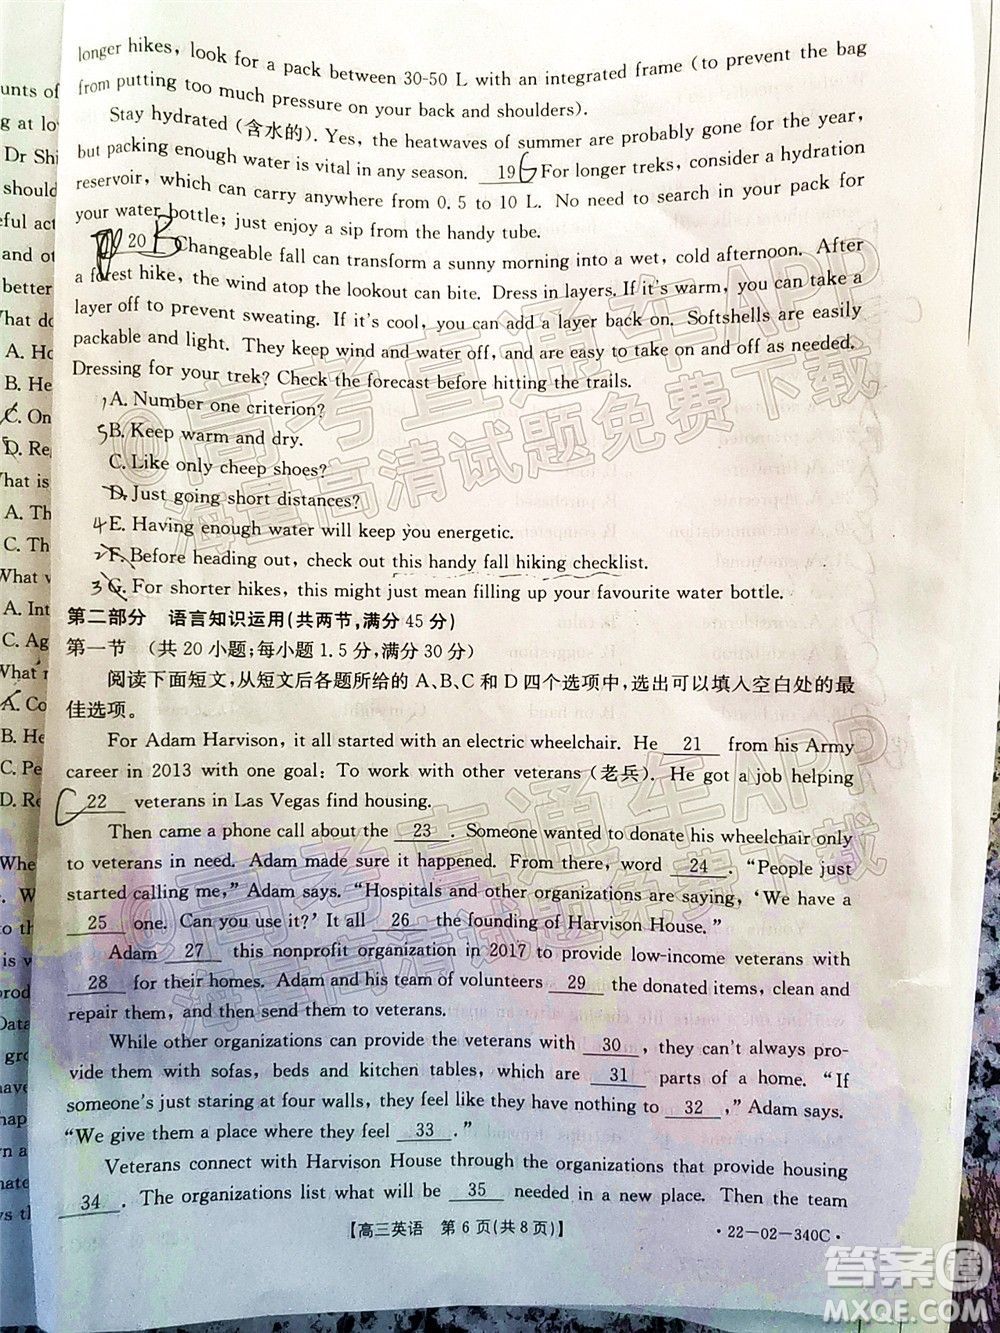 longer hikes, look for a pack between 30-50 L with an integrated frame (to prevent the bag
from putting too much pressure on your back and shoulders).
Stay hydrated (含水的). Yes, the heatwaves of summer are probably gone for the year,
but packing enough water is vital in any season. 19 G For longer treks, consider a hydration
reservoir, which can carry anywhere from 0.5 to 10 L. No need to search in your pack for
your water bottle; just enjoy a sip from the handy tube.
20 B Changeable fall can transform a sunny morning into a wet, cold afternoon. After
a forest hike, the wind atop the lookout can bite. Dress in layers. If it's warm, you can take a
layer off to prevent sweating. If it's cool, you can add a layer back on. Softshells are easily
packable and light. They keep wind and water off, and are easy to take on and off as needed.
Dressing for your trek? Check the forecast before hitting the trails.
1 A. Number one criterion?
5 B. Keep warm and dry.
C. Like only cheep shoes?
D. Just going short distances?
4 E. Having enough water will keep you energetic.
2 F. Before heading out, check out this handy fall hiking checklist.
3 G. For shorter hikes, this might just mean filling up your favourite water bottle.
第二部分 语言知识运用(共两节,满分 45 分)
第一节 (共 20 小题;每小题 1.5 分,满分 30 分)
阅读下面短文,从短文后各题所给的 A、B、C 和 D 四个选项中,选出可以填入空白处的最
佳选项。
For Adam Harvison, it all started with an electric wheelchair. He 21 from his Army
career in 2013 with one goal: To work with other veterans (老兵). He got a job helping
C 22 veterans in Las Vegas find housing.
Then came a phone call about the 23 . Someone wanted to donate his wheelchair only
to veterans in need. Adam made sure it happened. From there, word 24 . "People just
started calling me," Adam says. "Hospitals and other organizations are saying, 'We have a
25 one. Can you use it?' It all 26 the founding of Harvison House."
Adam 27 this nonprofit organization in 2017 to provide low-income veterans with
28 for their homes. Adam and his team of volunteers 29 the donated items, clean and
repair them, and then send them to veterans.
While other organizations can provide the veterans with 30 , they can't always pro-
vide them with sofas, beds and kitchen tables, which are 31 parts of a home. "If
someone's just staring at four walls, they feel like they have nothing to 32 ," Adam says.
"We give them a place where they feel 33 ."
Veterans connect with Harvison House through the organizations that provide housing
34 . The organizations list what will be 35 needed in a new place. Then the team
【高三英语 第 6 页(共 8 页)】
·22-02-340C·
unts of
g at lo
Dr Shi
should
eful act
and ot
better
What do
A. Ho
B. He
C. On
D. Re
What is
A. Th
C. The
What v
A. Int
C. Ag
What r
A. Co
B. He
C. Pe
D. Re
@高考直通车APP
海量高清试题免费下载
@高考直通车APP
海量高清试题免费下载
答案圈
MXQE.COM